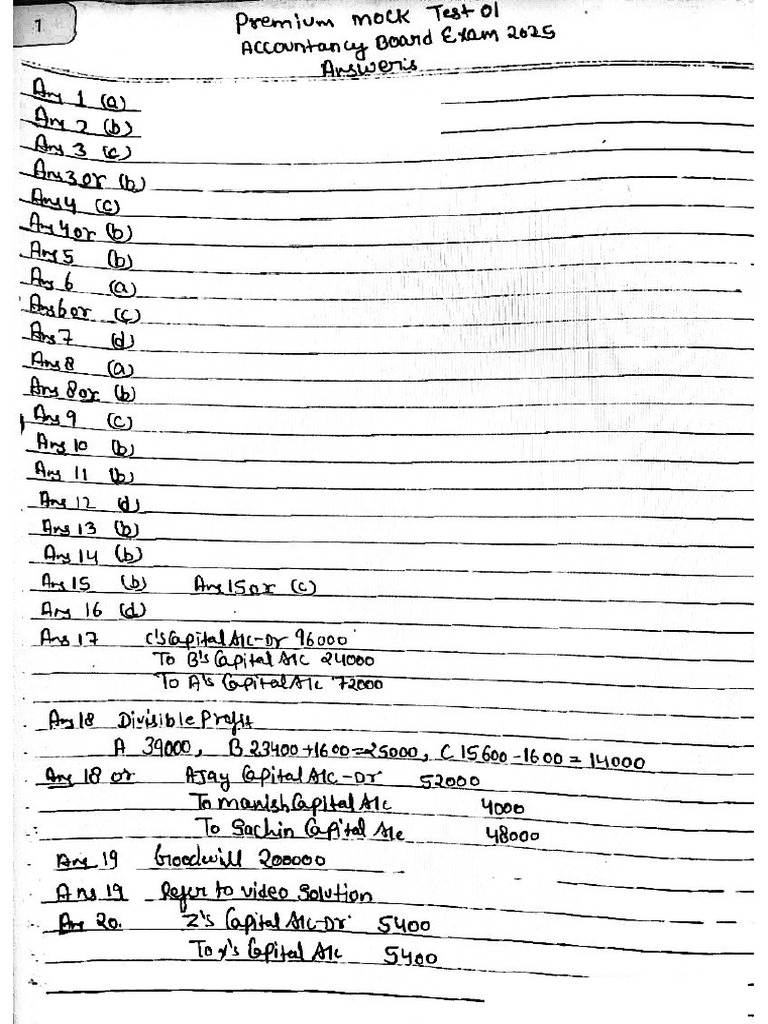 1
Premium Mock Test 01
Accountancy Board Exam 2025
Answers
Ans 1 (a)
Ans 2 (b)
Ans 3 (c)
Ans 3 or (b)
Ans 4 (c)
Ans 4 or (b)
Ans 5 (b)
Ans 6 (a)
Ans 6 or (c)
Ans 7 (d)
Ans 8 (a)
Ans 8 or (b)
Ans 9 (c)
Ans 10 (b)
Ans 11 (b)
Ans 12 (d)
Ans 13 (b)
Ans 14 (b)
Ans 15 (b) Ans 15 or (c)
Ans 16 (d)
Ans 17 C's Capital A/c-Dr 96000
To B's Capital A/c 24000
To A's Capital A/c 72000
Ans 18 Divisible Profit
A 39000, B 23400+1600=25000, C 15600-1600=14000
Ans 18 or Ajay Capital A/c-Dr 52000
To Manish Capital A/c 4000
To Sachin Capital A/c 48000
Ans 19 Goodwill 200000
Ans 19 Refer to video Solution
Ans 20. Z's Capital A/c-Dr 5400
To Y's Capital A/c 5400